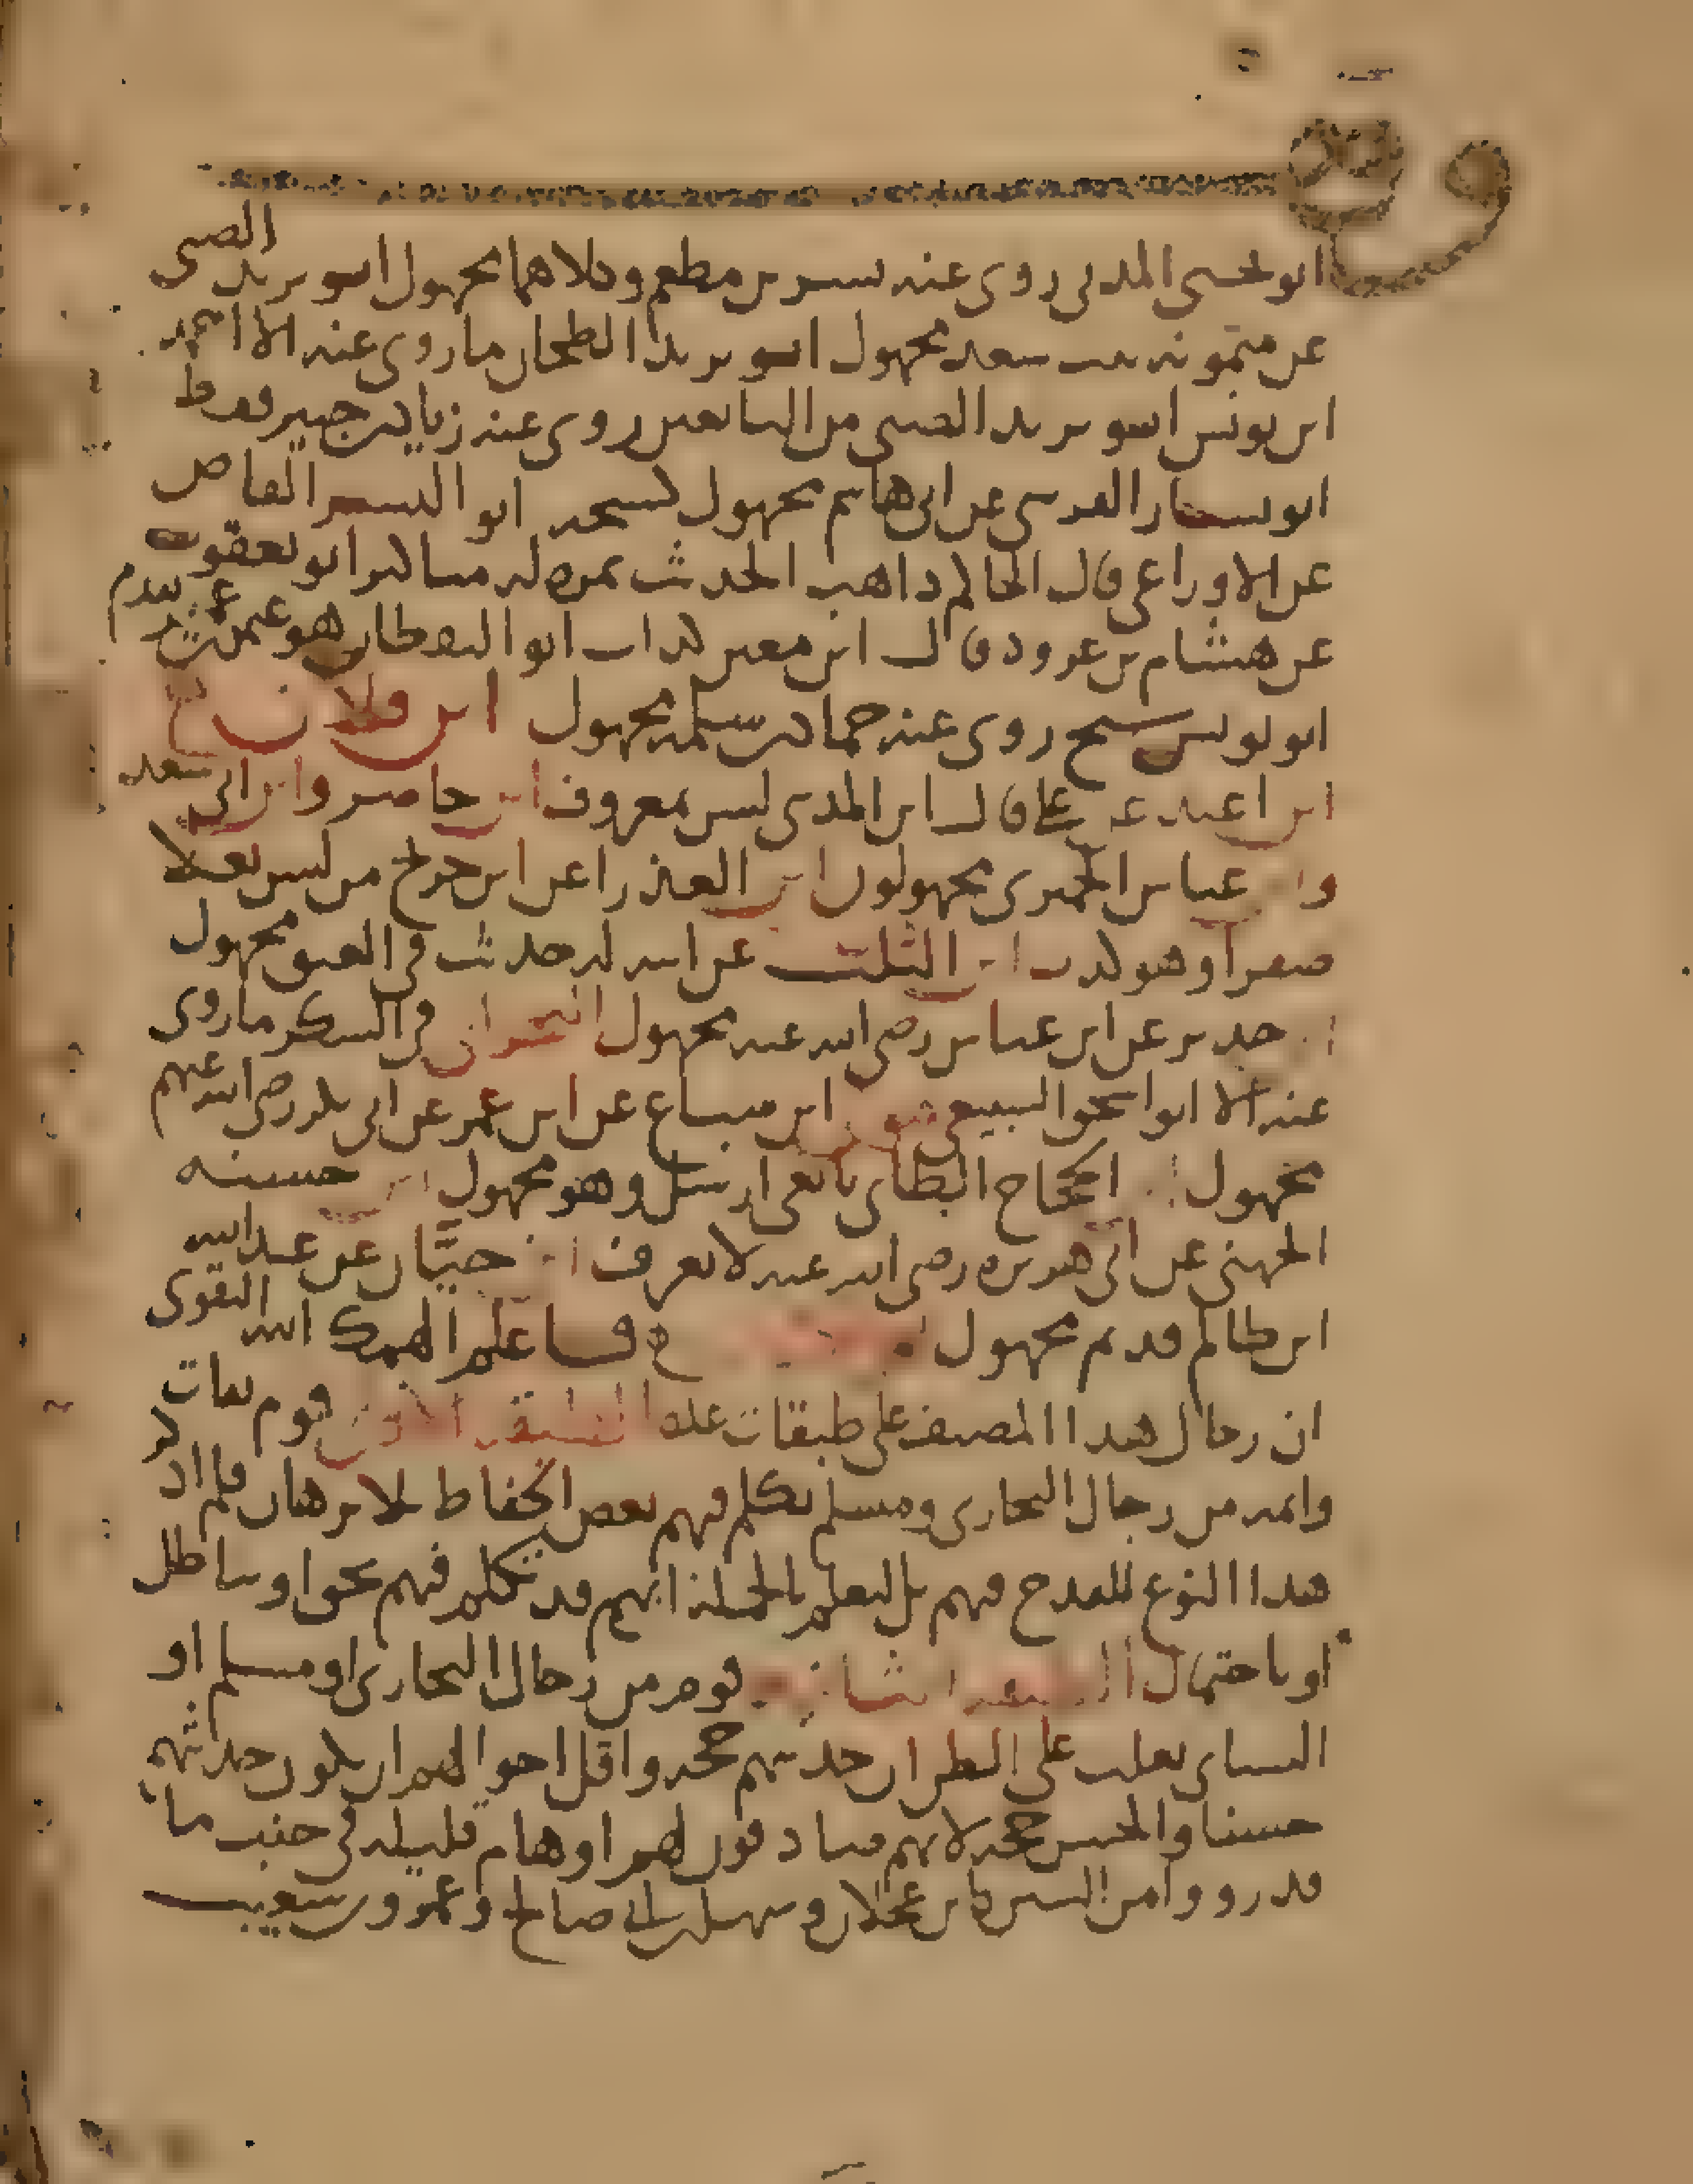 ابو يحيى المدني روى عنه بسر بن مطعم وكلاهما مجهول ابو يزيد الضبي
عن ميمونة بنت سعد مجهول ابو يزيد الطحان ما روى عنه الا احمد
ابن يونس ابو يزيد الضبي من التابعين روى عنه زياد بن جبير فقط
ابو يسار القرشي عن ابي هاشم مجهول كشيخه ابو اليسر القاص
عن الاوزاعي قال الحاكم ذاهب الحديث بمره له مناكير ابو يعقوب
عن هشام بن عروه قال ابن معين كذاب ابو اليقظان هو عثمن بن عمير تقدم
ابو يونس شيخ روى عنه حماد بن سلمه مجهول ابن فلان
ابن اعبد عن علي قال ابن المديني ليس بمعروف ابن حاضر وابن ابي سعد
و عباس الحميري مجهولون ابن العذراء عن ابن جريج من لبس نعلا
صفرا وهو كذب ابن الثلب عن ابيه له حديث في العتق مجهول
حدير عن ابن عباس رضي الله عنه مجهول النجراني في السكر ما روى
عنه الا ابو اسحق السبيعي ابن صياع عن ابن عمر عن ابي بكر رضي الله عنهم
مجهول ابن الحجاج الطائي تابعي ارسل وهو مجهول ابن حسنه
الجهني عن ابي هريره رضي الله عنه لا يعرف ابن حيان عن عبد الله
ابن ظالم قديم مجهول فاعلم الهمك الله التقوى
ان رجال هذا المصنف على طبقات عده الطبقه الاولى قوم ثقات
وائمه من رجال البخاري ومسلم تكلم فيهم بعض الحفاظ بلا برهان فلم اذكر
هذا النوع للقدح فيهم بل ليعلم بالجملة انهم قد تكلم فيهم بحق او بباطل
او باحتمال الطبقه الثانيه قوم من رجال البخاري او مسلم او
النسائي يغلب على الظن ان حديثهم حجه واقل احوالهم ان يكون حديثهم
حسنا والحسن حجه لانهم صادقون لهم اوهام قليله في جنب ما
قد رووا من السنن كابن عجلان وسهيل بن ابي صالح وعمرو بن شعيب